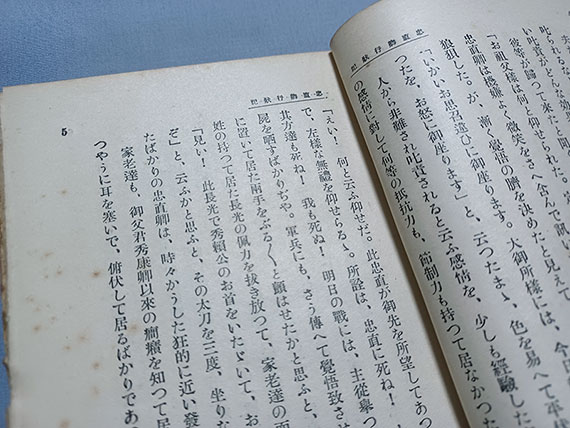 忠直卿行狀記
叱られるな
彼等が歸つて來たと聞
忠直卿は機嫌よく微笑をさへ含んで訊い
「お祖父樣は何と仰せられた。
狼狽した。が、漸く覺悟の臍を決めたと見えて、
「いかいお思召違ひに御座ります。大御所樣には、今日
つたを、お怒に御座ります」と、云つたまゝ、色を易へて平伏
人から非難され叱責されると云ふ感情を、少しも經驗した
の感情に對して何等の抵抗力も、節制力も持つて居なかつた
忠直卿行狀記
「えい！　何と云ふ仰せだ。此忠直が御先を所望してあつ
で、左樣な無禮を仰せらるゝ。所詮は、忠直に死ね！
北方達も死ね！　我も死ぬ！　明日の戰には、主從擧つ
屍を晒すばかりぢや。軍兵にも、さう傳へて覺悟致さ
に置いて居た兩手をぶる〱と顫はせたかと思ふと、
姓の持つて居た長光の佩刀を拔き放つて、家老達の面
「見い！　此長光で秀賴公のお首をいたゞいて、お
ぞ」と、云ふかと思ふと、その太刀を三度、坐りな
たばかりの忠直卿は、時々かうした狂的に近い發
家老達も、御父君秀康卿以來の癇癪を知つて居
つやうに耳を塞いで、俯伏して居るばかりであ
5